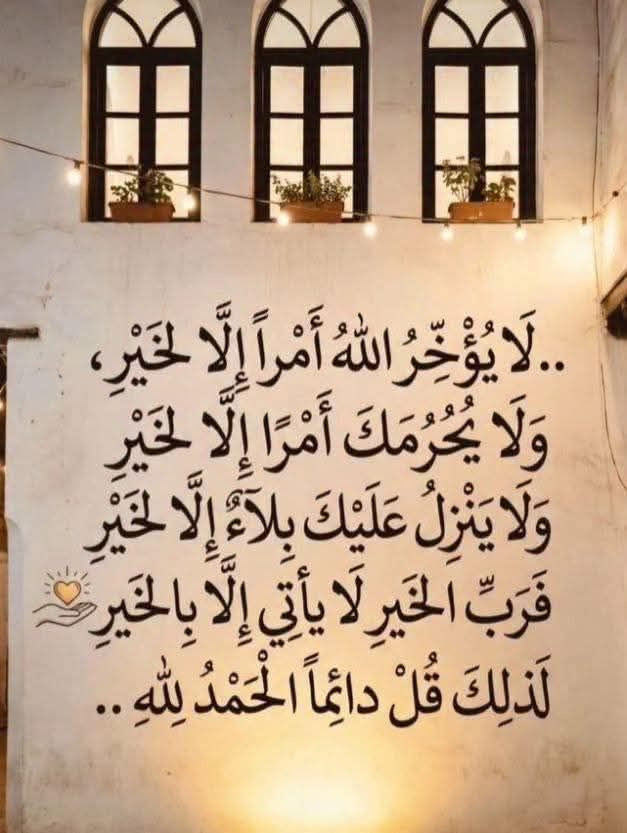 ..لَا يُؤْخِّرُ اللهُ أَمْراً إِلَّا لخَيْرِ،
وَلَا يُحُرُمَكَ أَمْرًا إِلَّا لخَيْرِ
وَلَا يَنْزِلُ عَلَيْكَ بِلآءٌ إِلَّا لخَيْرِ
فَرَبِّ الخَيرِ لَا يأتِي إِلَّا بِالخَيرِ
لَذلِكَ قُلْ دائِماً الْحَمْدُ لِلهِ ..